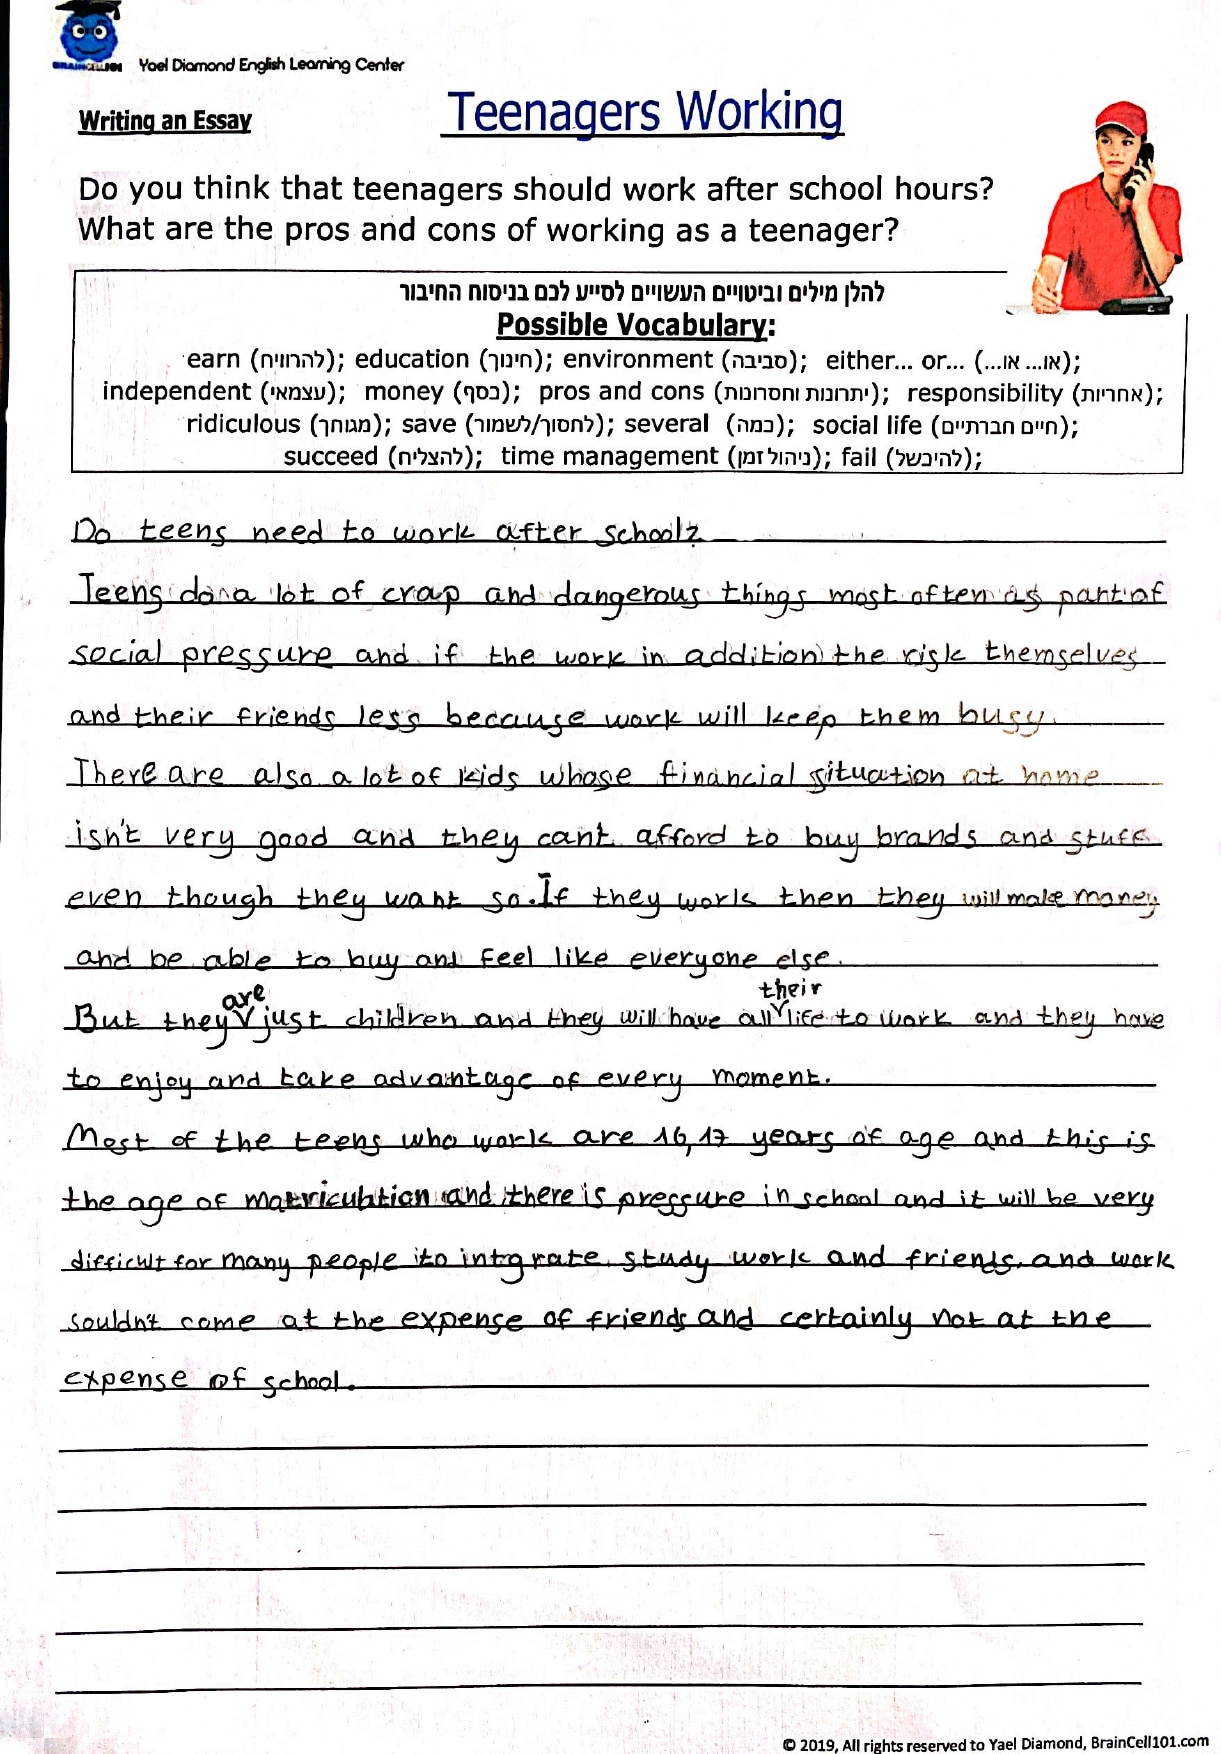 BRAINCELL101 Yael Diamond English Learning Center
Writing an Essay
Teenagers Working
Do you think that teenagers should work after school hours?
What are the pros and cons of working as a teenager?
להלן מילים וביטויים העשויים לסייע לכם בניסוח החיבור
Possible Vocabulary:
earn (להרוויח); education (חינוך); environment (סביבה); either... or... (או... או...);
independent (עצמאי); money (כסף); pros and cons (יתרונות וחסרונות); responsibility (אחריות);
ridiculous (מגוחך); save (לחסוך/לשמור); several (כמה); social life (חיים חברתיים);
succeed (להצליח); time management (ניהול זמן); fail (להיכשל);
Do teens need to work after school?
Teens do a lot of crap and dangerous things most often as part of
social pressure and if the work in addition the risk themselves
and their friends less because work will keep them busy.
There are also a lot of kids whose financial situation at home
isn't very good and they cant afford to buy brands and stuff
even though they want so. If they work then they will make money
and be able to buy and feel like everyone else.
But they are just children and they will have all their life to work and they have
to enjoy and take advantage of every moment.
Most of the teens who work are 16,17 years of age and this is
the age of matriculation and there is pressure in school and it will be very
difficult for many people to intgrate study work and friends. and work
souldn't come at the expense of friends and certainly not at the
expense of school.
© 2019, All rights reserved to Yael Diamond, BrainCell101.com